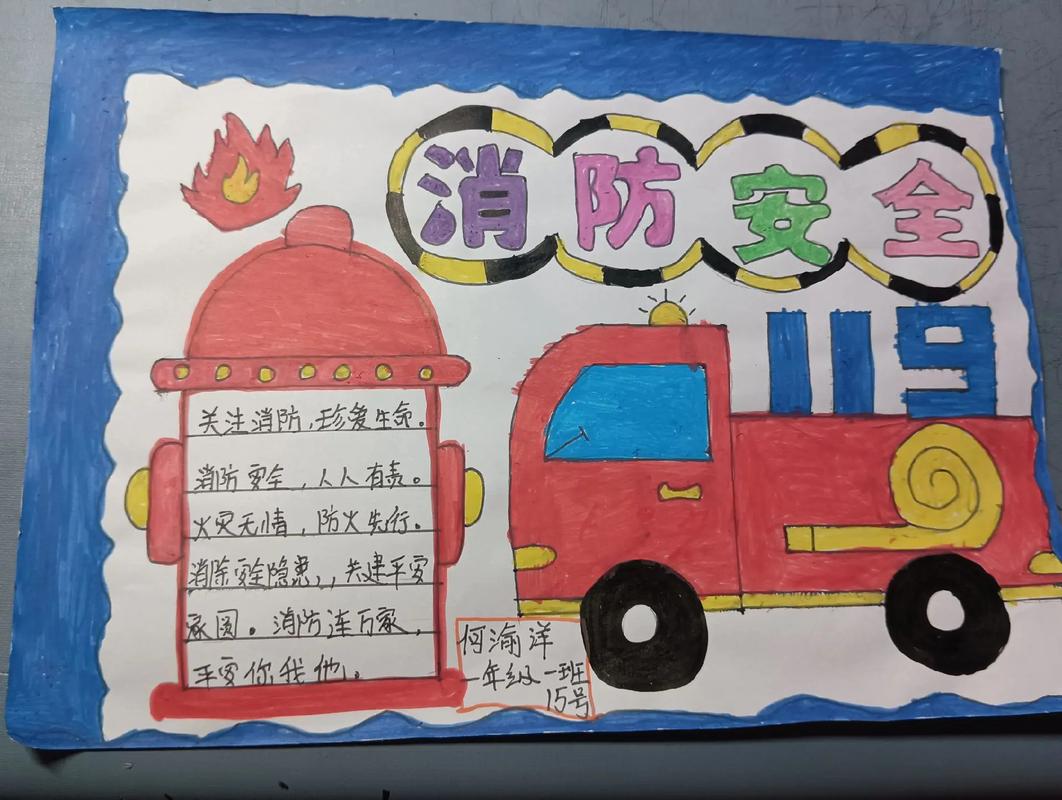 消防安全
119
关注消防,珍爱生命。
消防安全,人人有责。
火灾无情,防火先行。
消除安全隐患,,共建平安
家园。消防连万家,
平安你我他。
何瀹洋
一年级一班
15号